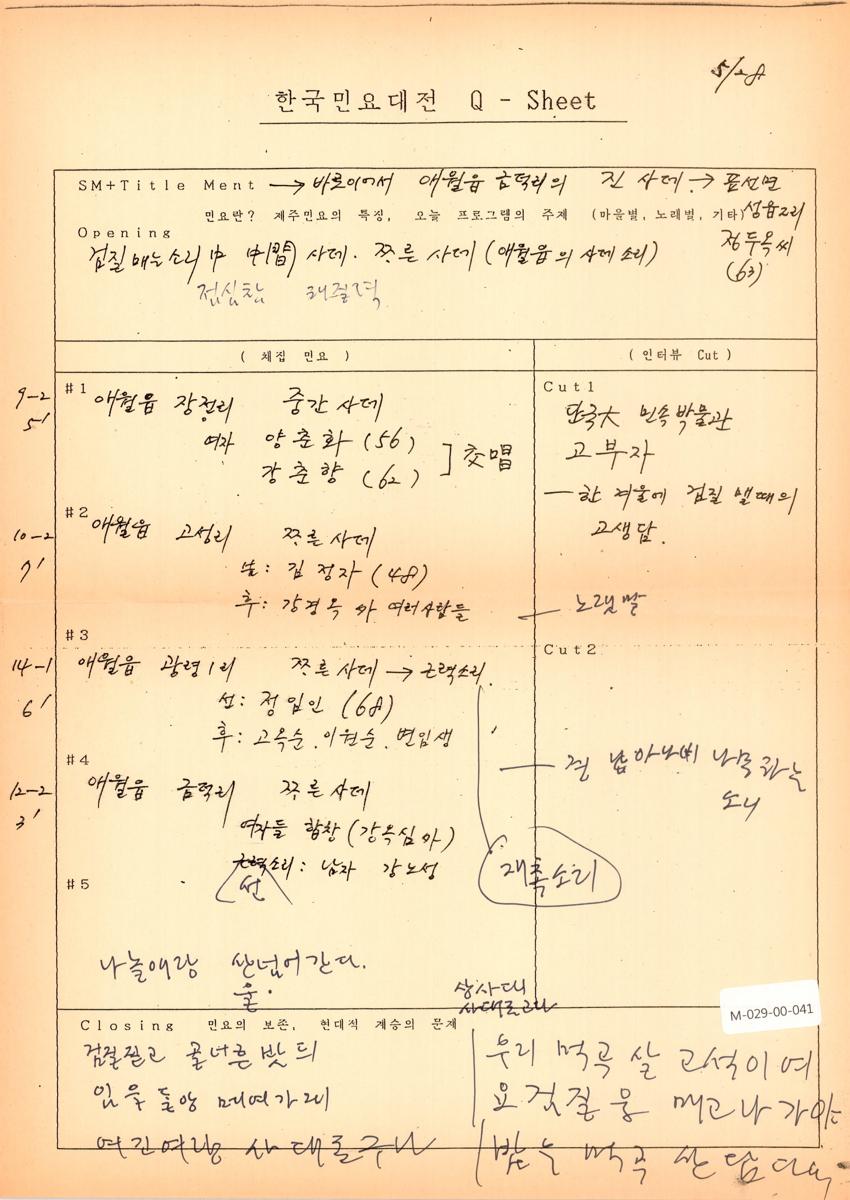 5/28
한국민요대전 Q - Sheet
SM+Title Ment → 바로이어서 애월읍 금덕리의 진 사데 → 표선면
민요란? 제주민요의 특징, 오늘 프로그램의 주제 (마을별, 노래별, 기타) 성읍2리
Opening
검질매는소리 中 中間 사데. 쯔른 사데 (애월읍의 사데소리)
정두옥씨
(63)
( 채집 민요 )
( 인터뷰 Cut )
9-2
5'
#1 애월읍 장전리 중간 사데
여자 양춘화 (56)
강춘향 (62)
] 交唱
10-2
7'
#2 애월읍 고성리 쯔른 사데
김정자 (48)
후: 강경옥 外 여러사람들
14-1
6'
#3
애월읍 광령1리 쯔른 사데 → 근력소리
선: 정임인 (68)
후: 고옥순. 이원순. 변임생
12-2
3'
#4
애월읍 금덕리 쯔른 사데
여자들 합창 (강옥심 外)
소리: 남자 강노성
선
#5
나놀애랑 산넘어간다.
울.
Cut1
단국大 민속박물관
고부자
— 한 겨울에 검질 맬때의
고생담.
노랫말
Cut2
소리
재촉소리
상사대
M-029-00-041
Closing 민요의 보존, 현대적 계승의 문제
검질짇고 골너른 밧듸
앞을 들앙
우리 먹곡 살 고석이여
요 검질 매고나 가
먹곡 산답